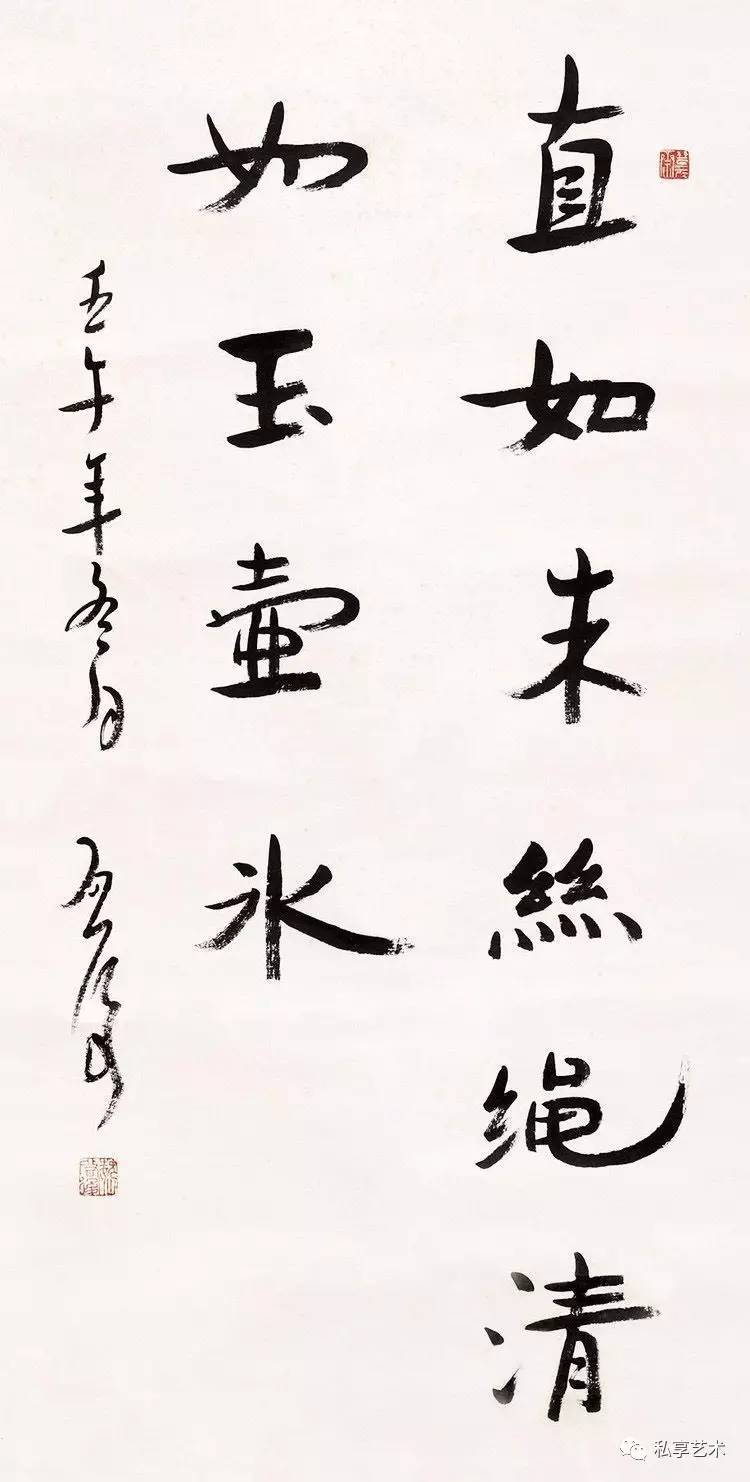 直如朱絲绳清
如玉壶冰
壬午年冬月
私享艺术